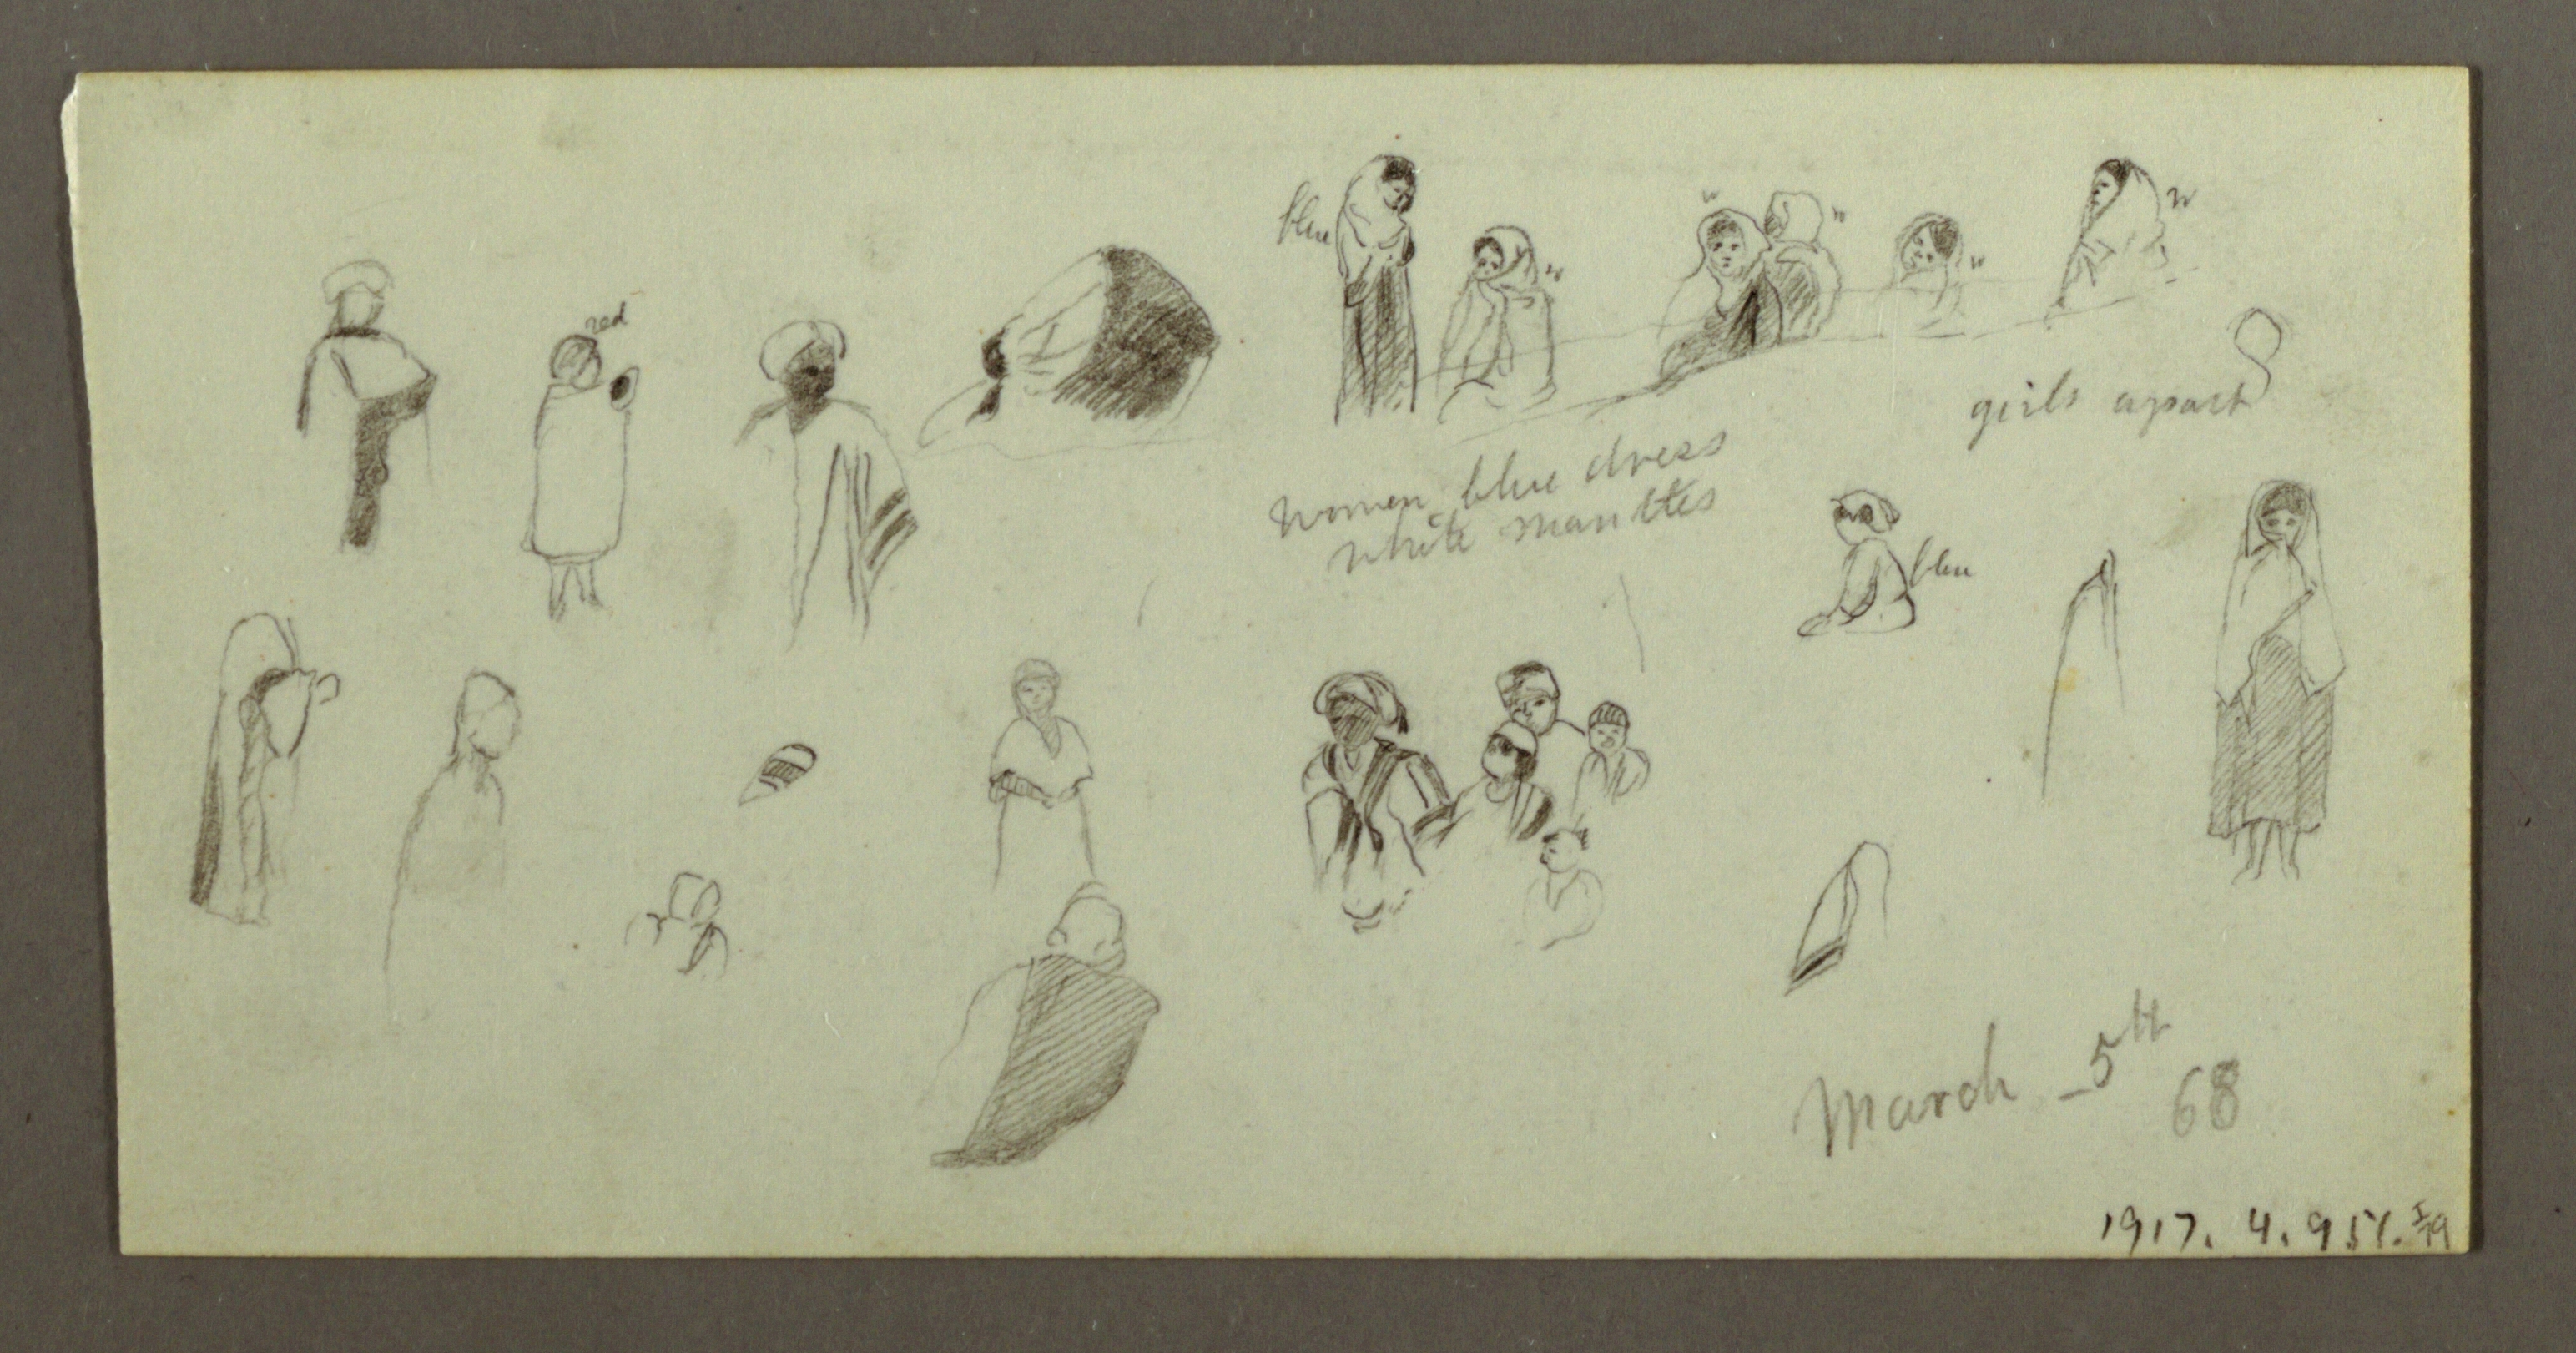 blue
w
w
w
w
w
red
girls apart
women blue dress
white mantles
blue
March 5th
68
1917. 4. 951. I/79